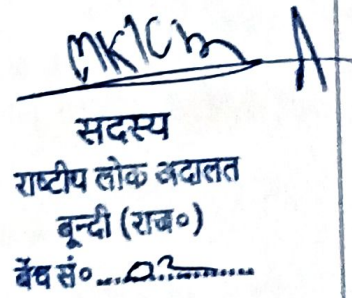 सदस्य
राष्टीय लोक अदालत
बून्दी (राज०)
बेंच सं० ....02............